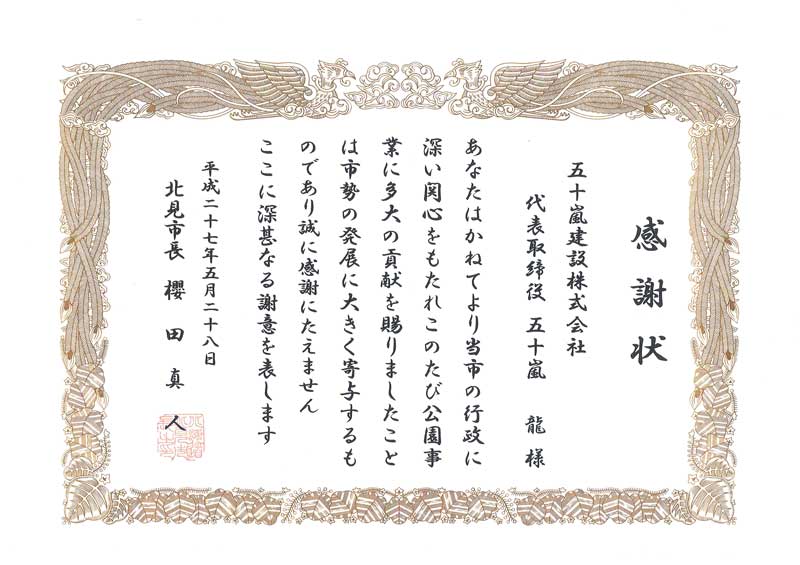 感謝状
五十嵐建設株式会社
代表取締役 五十嵐 龍 様
あなたはかねてより当市の行政に
深い関心をもたれこのたび公園事
業に多大の貢献を賜りましたこと
は市勢の発展に大きく寄与するも
のであり誠に感謝にたえません
ここに深甚なる謝意を表します
平成二十七年五月二十八日
北見市長 櫻田真人